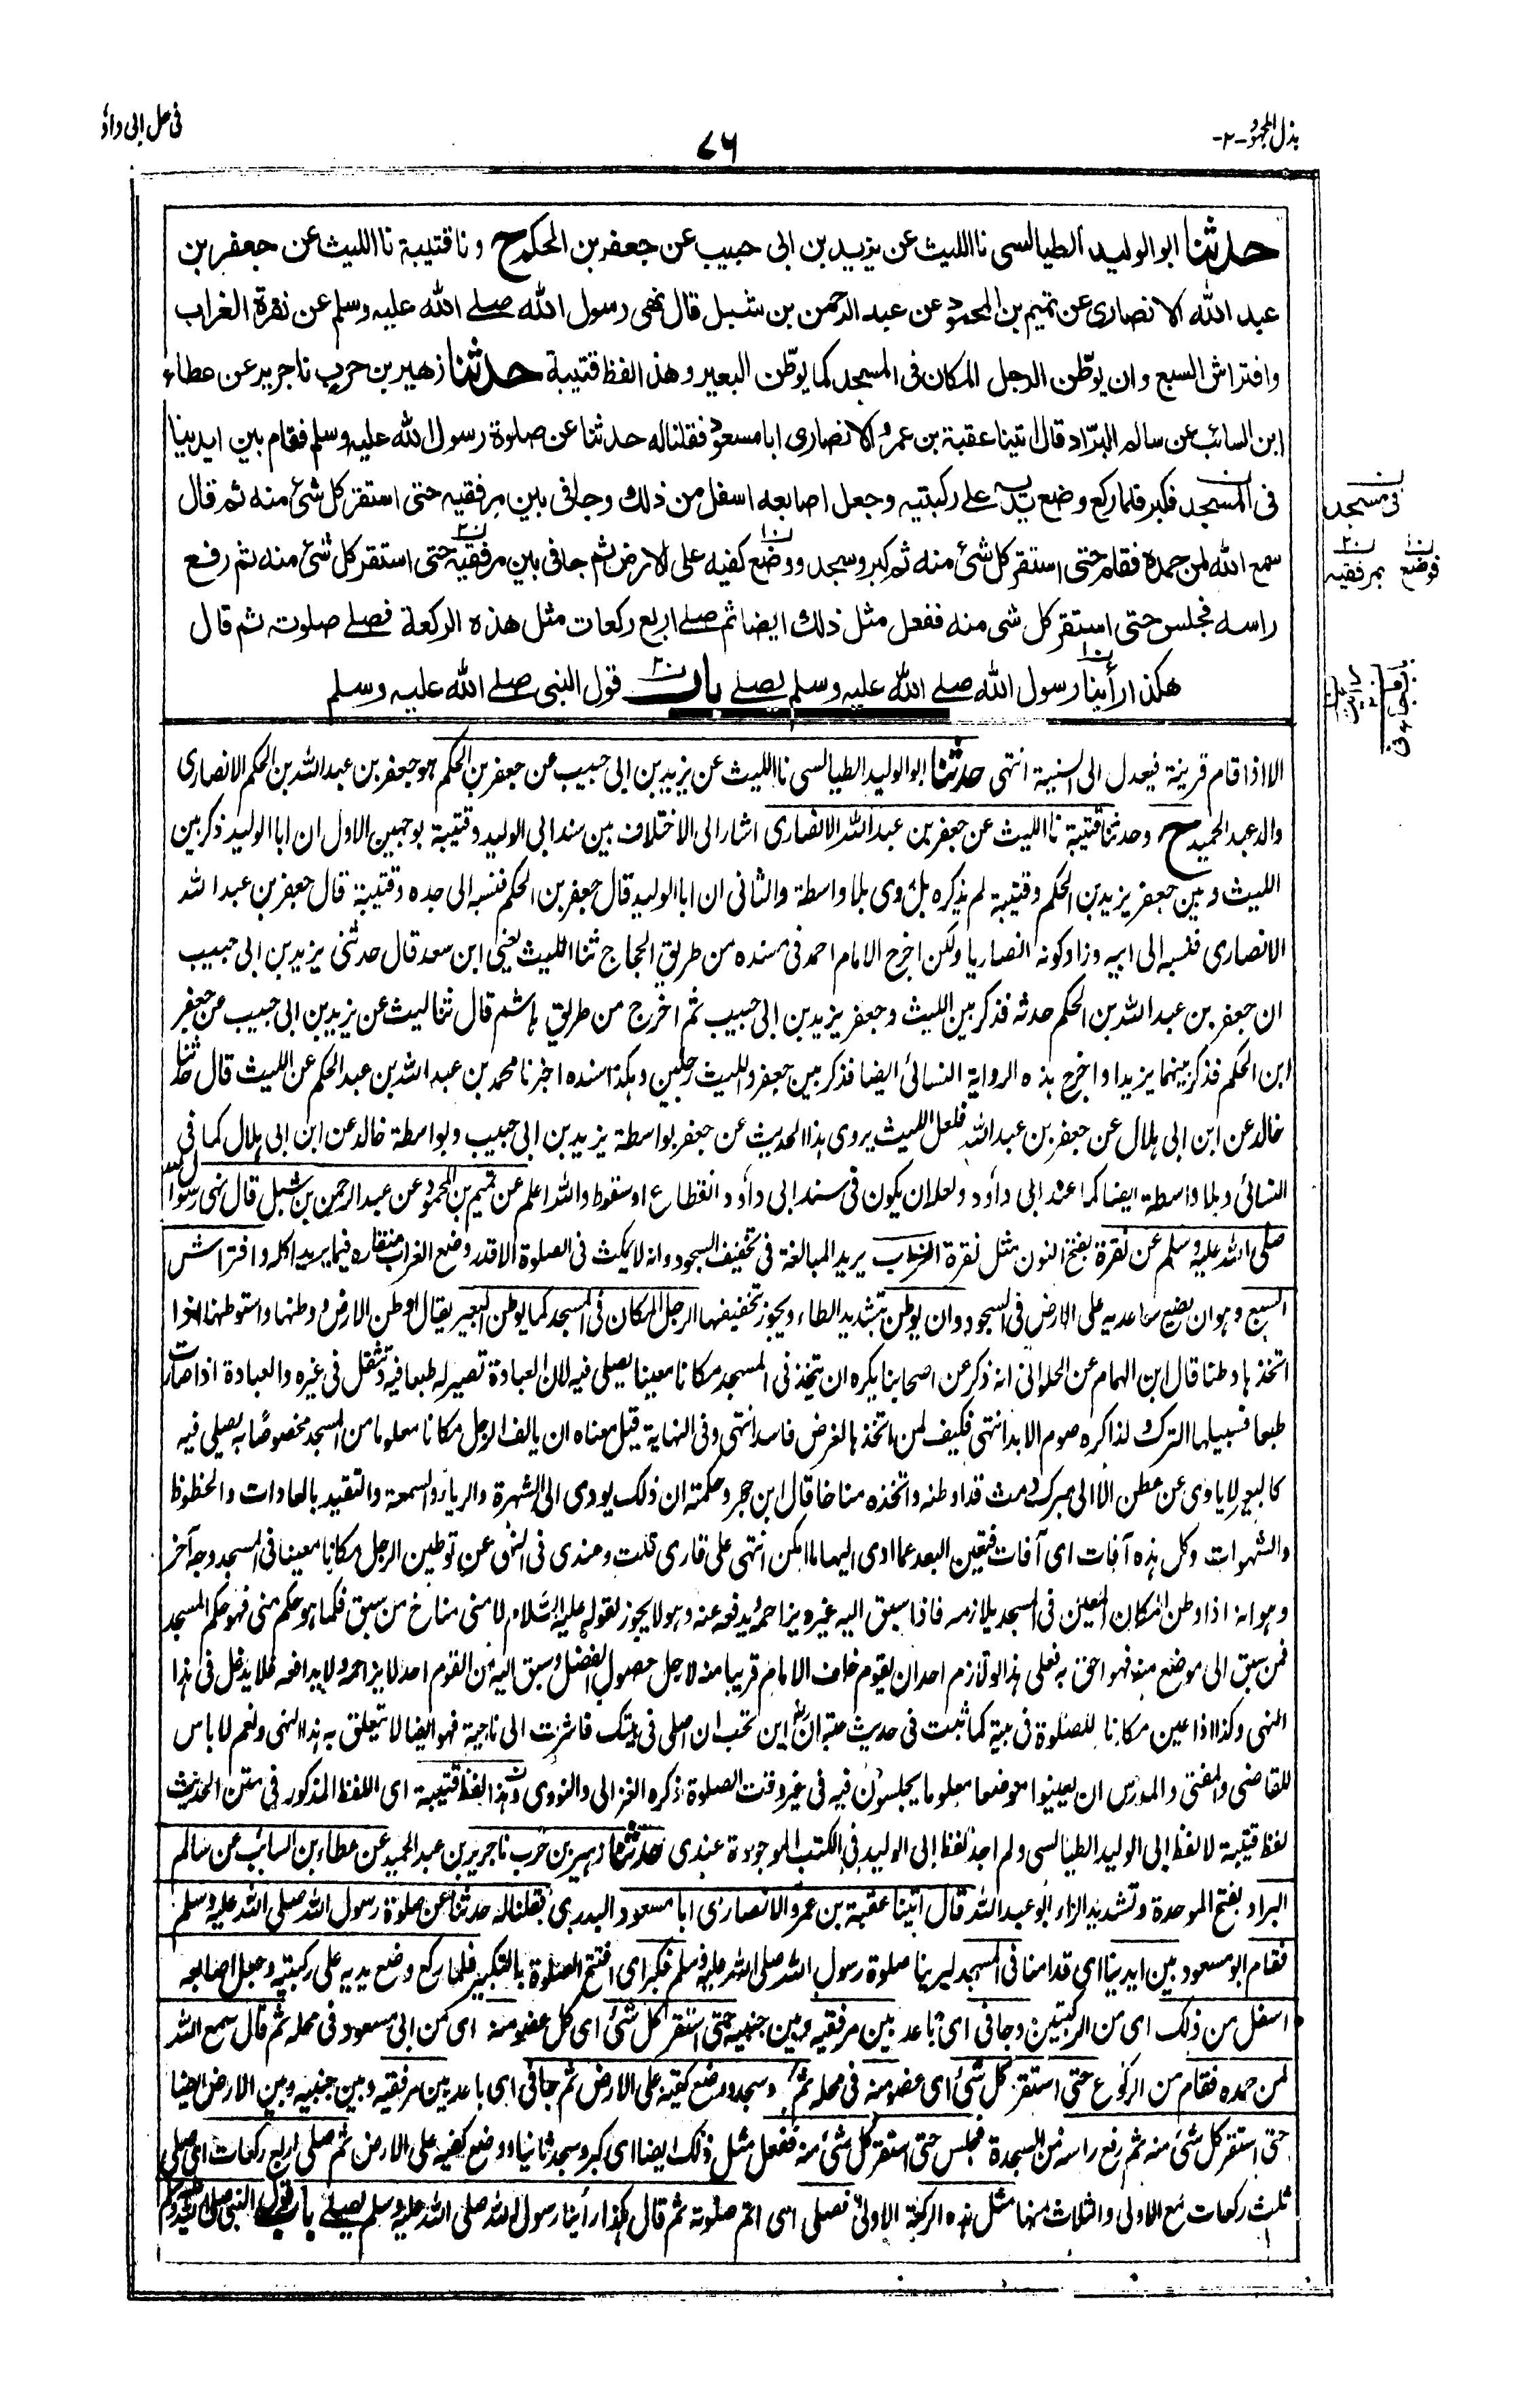 بذل المجهود -٢-
٧٦
فی حل ابی داؤد
حدثنا ابو الوليد الطيالسی نا الليث عن يزيد بن ابی حبيب عن جعفر بن الحكم ح ونا قتيبة نا الليث عن جعفر بن
عبد الله الانصاری عن تميم بن المحمود عن عبد الرحمن بن شبل قال نهی رسول الله صلے الله عليه وسلم عن نقرة الغراب
وافتراش السبع وان يوطّن الرجل المكان فی المسجد كما يوطّن البعير وهذا لفظ قتيبة حدثنا زهير بن حرب نا جرير عن عطاء
ابن السائب عن سالم البرّاد قال اتينا عقبة بن عمرو الانصاری ابا مسعود فقلنا له حدثنا عن صلوة رسول الله عليه وسلم فقام بين ايدينا
فی المسجد فكبر فلما ركع وضع يديه علے ركبتيه وجعل اصابعه اسفل من ذلك وجافی بين مرفقيه حتی استقر كل شئ منه ثم قال
سمع الله لمن حمده فقام حتی استقر كل شئ منه ثم كبر وسجد ووضع كفيه علی الارض ثم جافی بين مرفقيه حتی استقر كل شئ منه ثم رفع
راسه فجلس حتی استقر كل شی منه ففعل مثل ذلك ايضا ثم صلے اربع ركعات مثل هذه الركعة فصلے صلوته ثم قال
هكذا رأينا رسول الله صلے الله عليه وسلم يصلے باب قول النبی صلے الله عليه وسلم
فی مسجد
فوضع
بمرفقيه
الا اذا قام قرينة فيعدل الی السنية انتهی حدثنا ابو الوليد الطيالسی نا الليث عن يزيد بن ابی حبيب عن جعفر بن الحكم هو جعفر بن عبد الله بن الحكم الانصاری
والد عبد الحميد ح وحدثنا قتيبة نا الليث عن جعفر بن عبد الله الانصاری اشار الی الاختلاف بين سند ابی الوليد وقتيبة بوجهين الاول ان ابا الوليد ذكر بين
الليث وبين جعفر يزيد بن الحكم وقتيبة لم يذكره بل روی بلا واسطة والثانی ان ابا الوليد قال جعفر بن الحكم فنسبه الی جده وقتيبة قال جعفر بن عبد الله
الانصاری فنسبه الی ابيه وزاد كونه انصاريا ولكن اخرج الامام احمد فی مسنده من طريق الحجاج ثنا الليث يعنی ابن سعد قال حدثنی يزيد بن ابی حبيب
ان جعفر بن عبد الله بن الحكم حدثه فذكر بين الليث وجعفر يزيد بن ابی حبيب ثم اخرج من طريق هاشم قال ثنا ليث عن يزيد بن ابی حبيب عن جعفر
ابن الحكم فذكر بينهما يزيدا واخرج هذه الرواية النسائی ايضا فذكر بين جعفر والليث رجلين وهكذا سنده اخبرنا محمد بن عبد الله بن عبد الحكم عن الليث قال حدثنا
خالد عن ابن ابی هلال عن جعفر بن عبد الله فلعل الليث يروی هذا الحديث عن جعفر بواسطة يزيد بن ابی حبيب وبواسطة خالد عن ابن ابی هلال كما فی
النسائی وبلا واسطة ايضا كما عند ابی داؤد ولعل ان يكون فی سند ابی داؤد انقطاع او سقوط والله اعلم عن تميم بن المحمود عن عبد الرحمن بن شبل قال نهی رسول الله
صلی الله عليه وسلم عن نقرة بفتح النون مثل نقرة الغراب يريد المبالغة فی تخفيف السجود وانه لا يمكث فی الصلوة الا قدر وضع الغراب منقاره فيما يريد اكله وافتراش
السبع وهو ان يضع ساعديه علی الارض فی السجود وان يوطن بتشديد الطاء ويجوز تخفيفها الرجل المكان فی المسجد كما يوطن البعير يقال اوطن الارض ووطنها واستوطنها اذا
اتخذها وطنا قال ابن الهمام عن الحلوانی انه ذكر عن اصحابنا يكره ان يتخذ فی المسجد مكانا معينا يصلی فيه لان العبادة تصير له طبعا فيه وتثقل فی غيره والعبادة اذا صارت
طبعا فسبيلها الترك لذا كره صوم الابد انتهی فكيف لمن اتخذها لغرض فاسد انتهی وفی النهاية قيل معناه ان يالف الرجل مكانا معلوما من المسجد مخصوصًا به يصلی فيه
كالبعير لا ياوی عن عطن الا الی مبرك دمث قد اوطنه واتخذه مناخا قال ابن حجر وحكمته ان ذلك يودی الی الشهرة والرياء والسمعة والتقيد بالعادات والحظوظ
والشهوات وكل هذه آفات ای آفات فيتعين البعد عما ادی اليها ما امكن انتهی علی قاری قلت وعندی فی النهی عن توطين الرجل مكانا معينا فی المسجد وجه آخر
وهو انه اذا وطن المكان المعين فی المسجد يلازمه فاذا سبق اليه غيره يزاحمه ويدفعه عنه وهو لا يجوز لقوله عليه السلام لا منی مناخ من سبق فكما هو حكم منی فهو حكم المسجد
فمن سبق الی موضع منه فهو احق به فعلی هذا لو لازم احد ان يقوم خلف الامام قريبا منه لاجل حصول الفضل وسبق اليه من القوم احد لا يزاحمه ولا يدافعه فلا يدخل فی هذا
النهی وكذا اذا عين مكانا للصلوة فی بيته كما ثبت فی حديث عتبان اين تحب ان اصلی فی بيتك فاشرت الی ناحية فهو ايضا لا يتعلق به هذا النهی ونعم لا باس
للقاضی والمفتی والمدرس ان يعينوا موضعا معلوما يجلسون فيه فی غير وقت الصلوة ذكره الغزالی والنووی وهذا لفظ قتيبة ای اللفظ المذكور فی متن الحديث
لفظ قتيبة لا لفظ ابی الوليد الطيالسی ولم اجد لفظ ابی الوليد فی الكتب الموجودة عندی حدثنا زهير بن حرب نا جرير بن عبد الحميد عن عطاء بن السائب عن سالم
البراد بفتح الموحدة وتشديد الراء ابو عبد الله قال اتينا عقبة بن عمرو الانصاری ابا مسعود البدری فقلنا له حدثنا عن صلوة رسول الله صلی الله عليه وسلم
فقام ابو مسعود بين ايدينا ای قدامنا فی المسجد ليرينا صلوة رسول الله صلی الله عليه وسلم فكبر ای افتتح الصلوة بالتكبير فلما ركع وضع يديه علی ركبتيه وجعل اصابعه
اسفل من ذلك ای من الركبتين وجافی ای باعد بين مرفقيه وبين جنبيه حتی استقر كل شئ ای كل عضو منه ای من ابی مسعود فی محله ثم قال سمع الله
لمن حمده فقام من الركوع حتی استقر كل شئ ای عضو منه فی محله ثم وسجد ووضع كفيه علی الارض ثم جافی ای باعد بين مرفقيه وبين جنبيه وبين الارض ايضا
حتی استقر كل شئ منه ثم رفع راسه من السجدة فجلس حتی استقر كل شئ منه ففعل مثل ذلك ايضا ای كبر وسجد ثانيا ووضع كفيه علی الارض ثم صلی اربع ركعات ای صلی
ثلث ركعات مع الاولی والثلاث منها مثل هذه الركعة الاولی فصلی ای اتم صلوته ثم قال هكذا رأينا رسول الله صلی الله عليه وسلم يصلے باب قول النبی صلی الله عليه وسلم